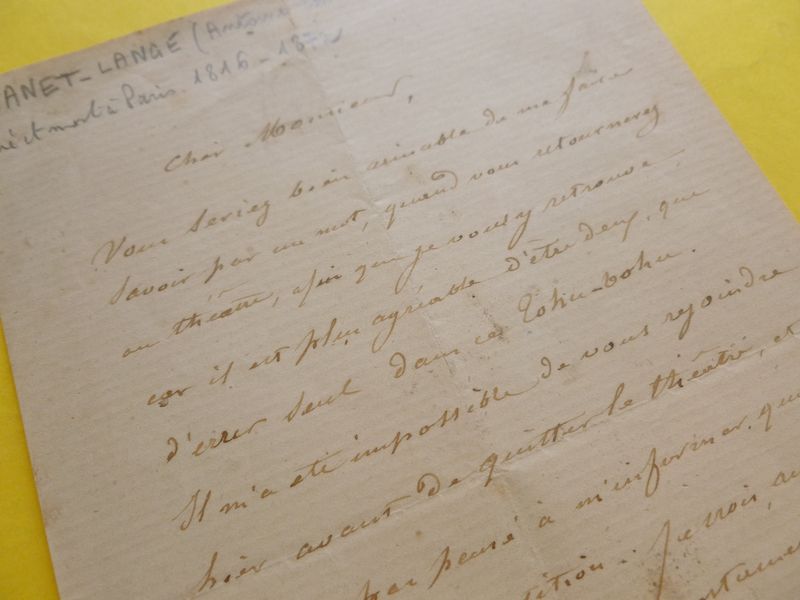 ANET-LANGÉ (Antoine
et mort à Paris 1816-187
Cher Monsieur,
Vous seriez bien aimable de me faire
savoir par un mot, quand vous retournerez
au théâtre, afin que je vous y retrouve,
car il est plus agréable d'être deux, que
d'errer seul dans ce Tohu-bohu.
Il m'a été impossible de vous rejoindre
hier avant de quitter le théâtre, et
pas pensé à m'informer que
tition. Je vois, au